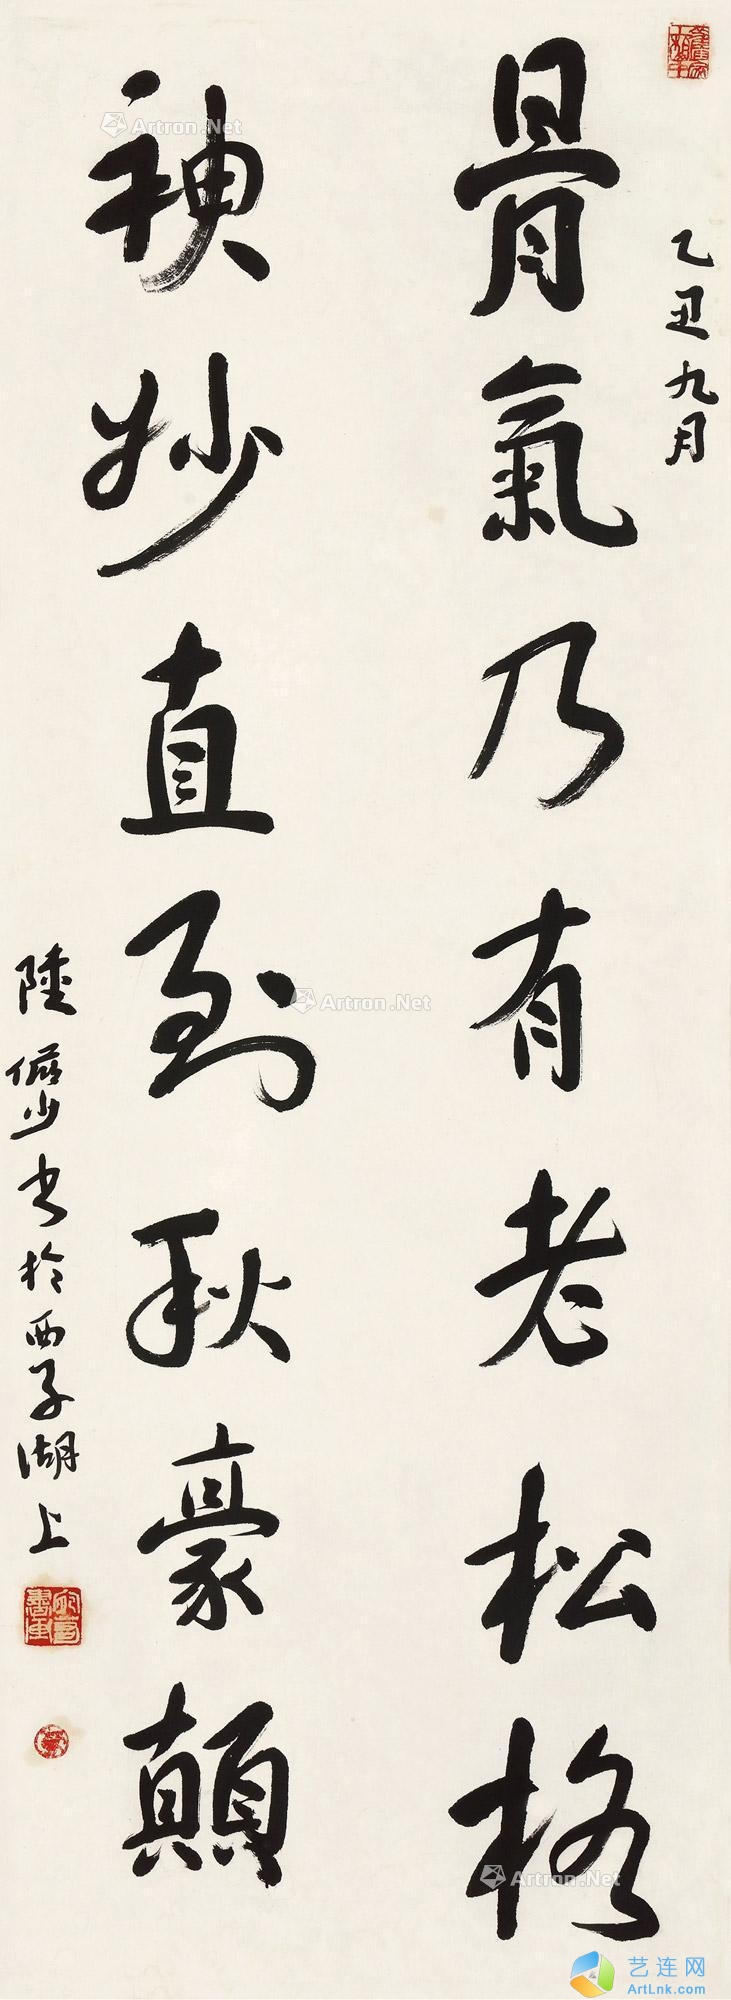 乙丑九月
骨氣乃有老松格
神妙直到秋豪顛
陸儼少書於西子湖上
Artron.Net
Artron.Net
Artron.Net
艺连网
ArtLnk.com